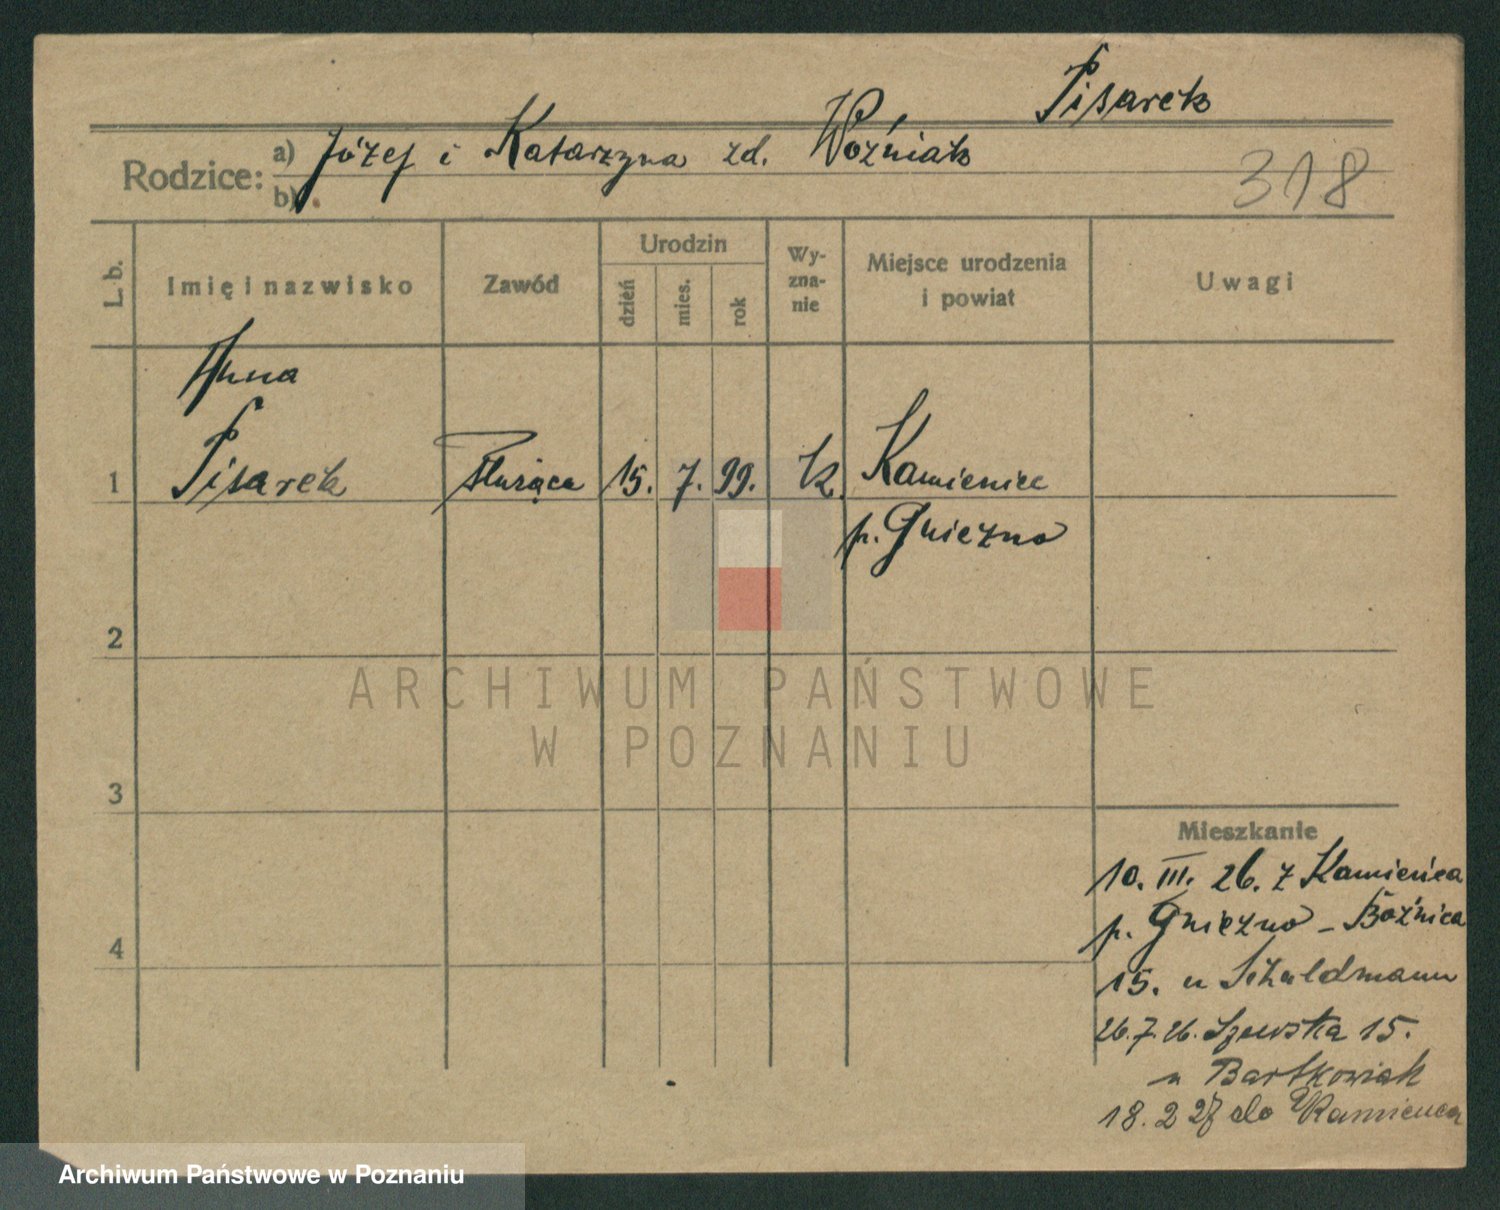 Pisarek
Rodzice: a) Józef i Katarzyna zd. Woźniak
b)
318
L. b.
Imię i nazwisko
Zawód
Urodzin
dzień
mies.
rok
Wy-
zna-
nie
Miejsce urodzenia
i powiat
Uwagi
Anna
1 Pisarek służąca 15. 7. 99. k. Kamieniec
p. Gniezno
2
3
4
Mieszkanie
10. III. 26. z Kamieńca
p. Gniezno - Bóźnica
15. u
26.7.26. Szewska 15.
u Bartkowiak
18.2 27 do Kamieńca
ARCHIWUM PAŃSTWOWE
W POZNANIU
Archiwum Państwowe w Poznaniu